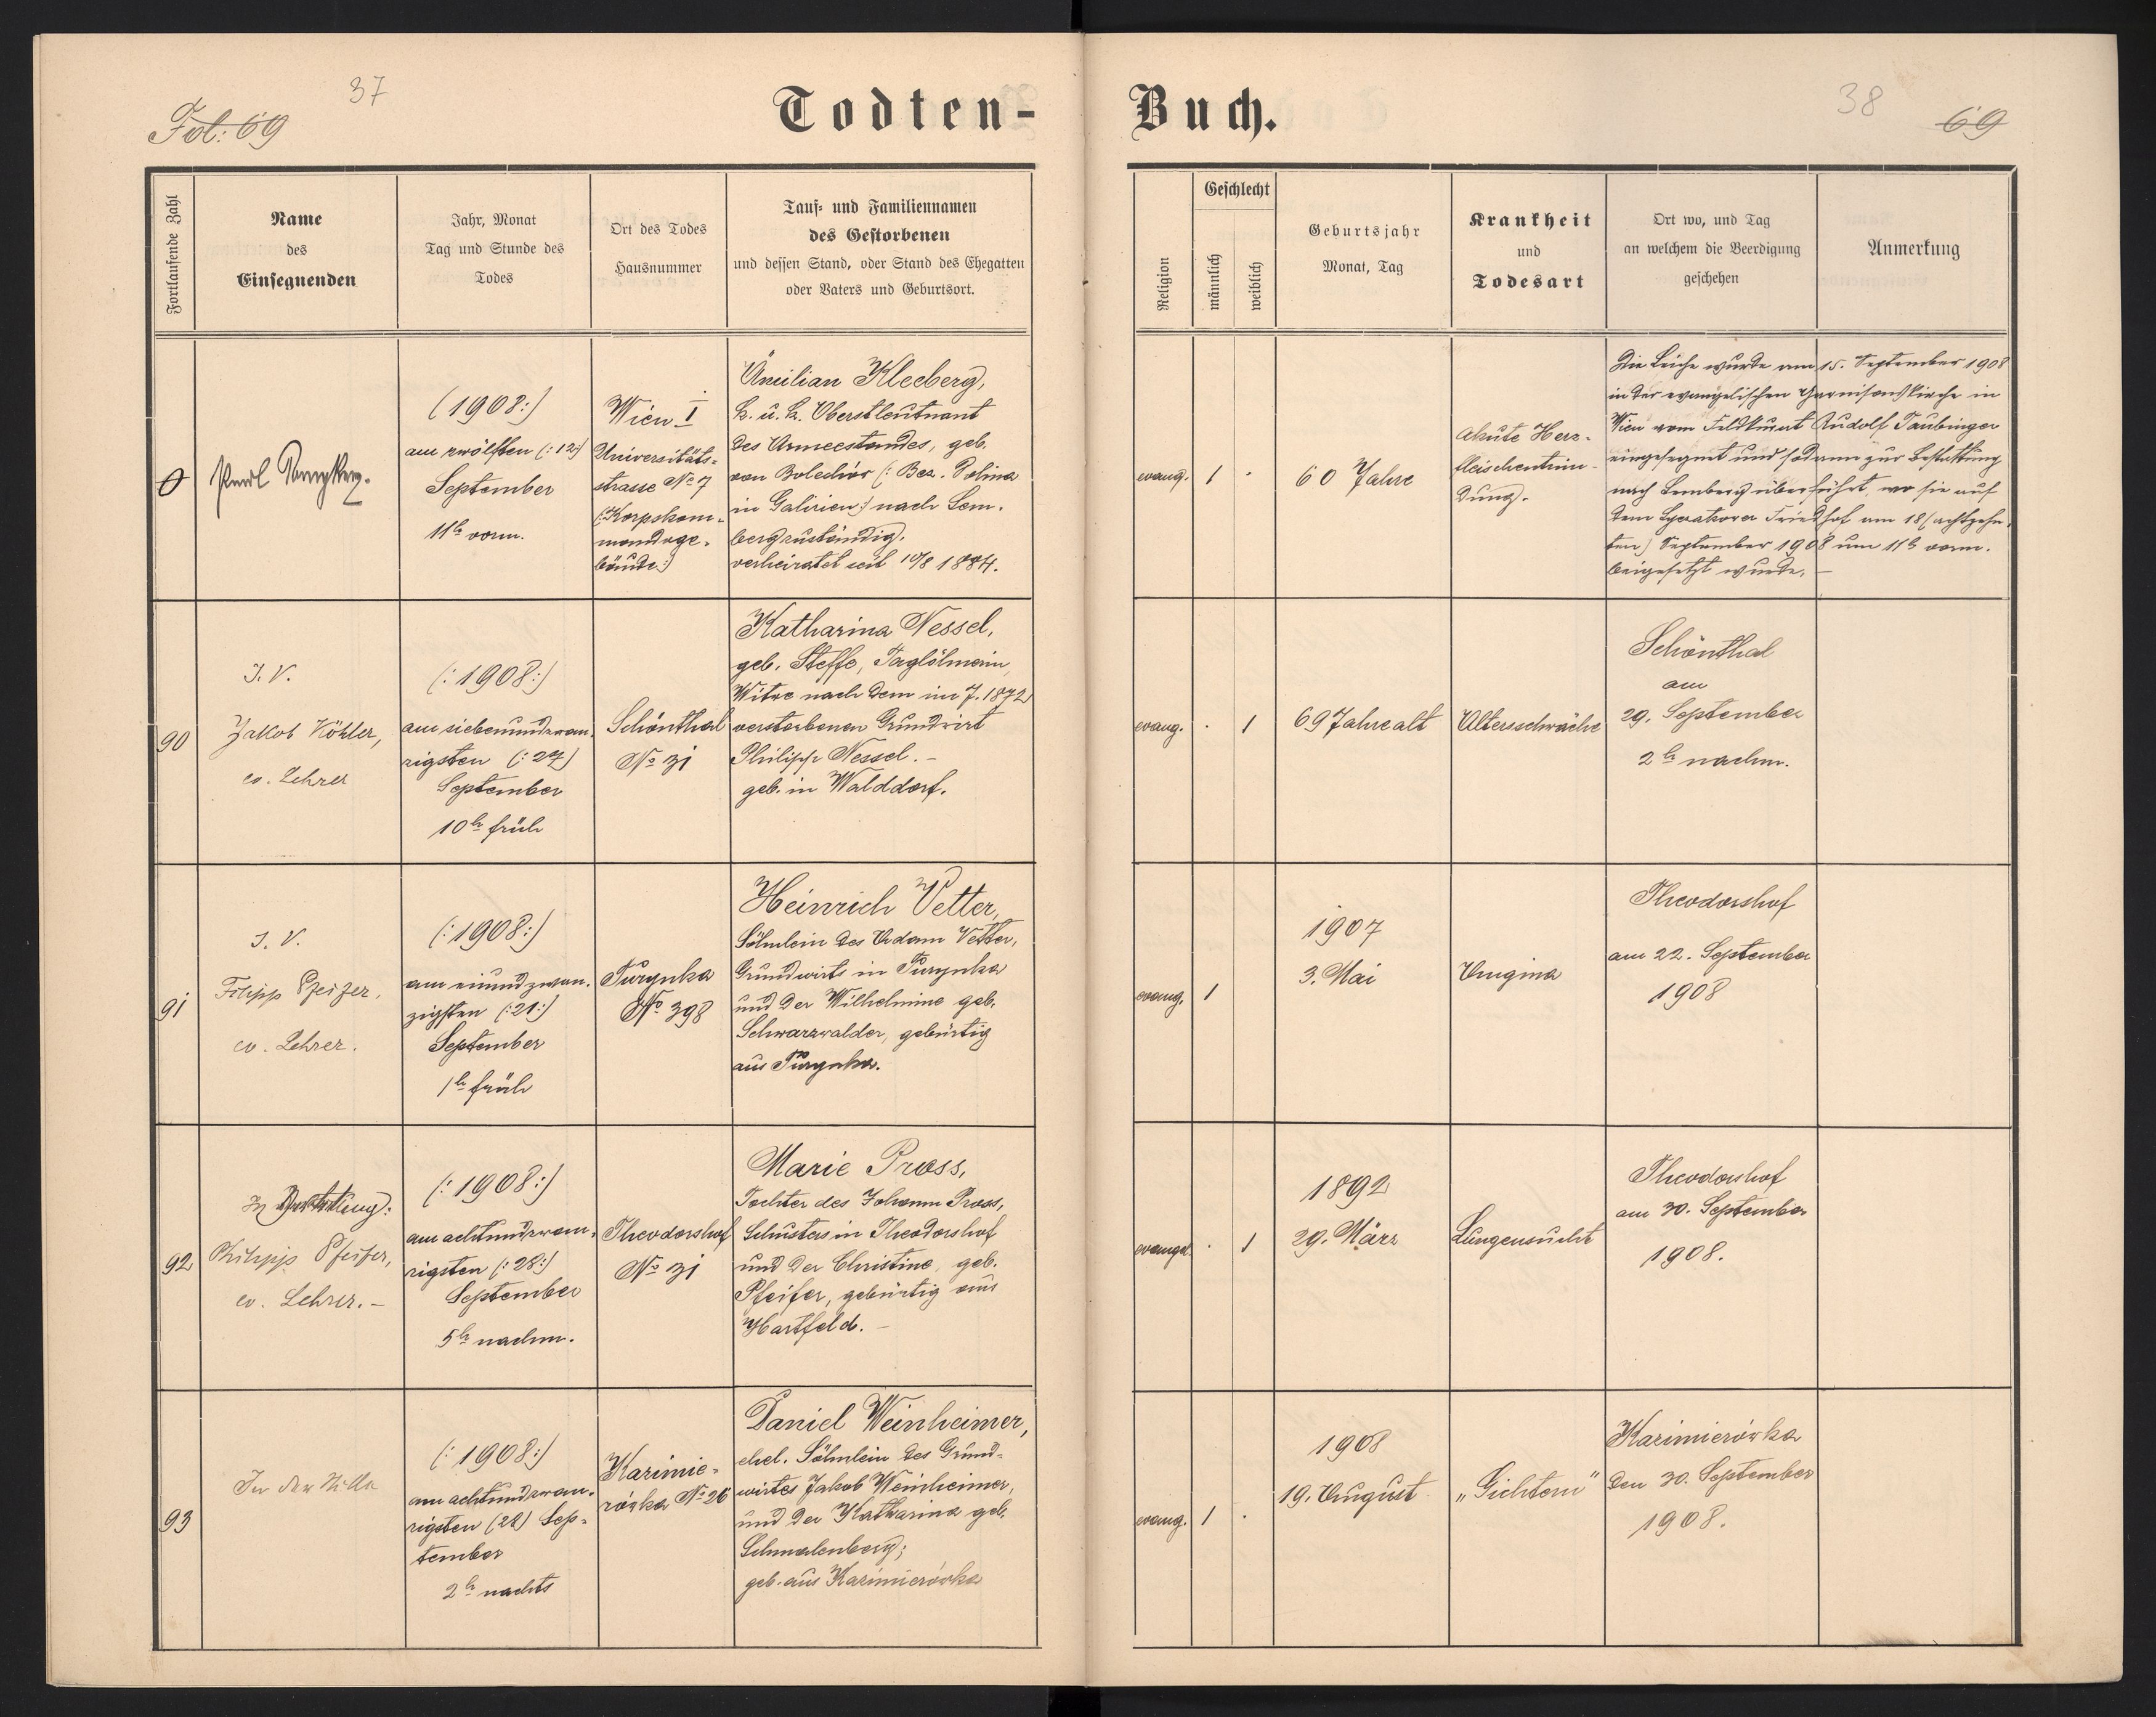 37
Fol: 69
Todten-
Buch.
38
69
Fortlaufende Zahl
Name
des
Einsegnenden
Jahr, Monat
Tag und Stunde des
Todes
Ort des Todes
Hausnummer
Tauf- und Familiennamen
des Gestorbenen
und dessen Stand, oder Stand des Ehegatten
oder Vaters und Geburtsort.
Religion
Geschlecht
männlich
weiblich
Geburtsjahr
Monat, Tag
Krankheit
und
Todesart
Ort wo, und Tag
an welchem die Beerdigung
geschehen
Anmerkung
0
Paul
(1908:)
am zwölften (:12:)
September
11h vorm.
Wien I
Universitäts-
strasse No 7
(:Korpskom-
mandoge-
bäude:)
Ämilian Kleeberg,
k. u. k. Oberstleutnant
des Armeestandes, geb.
von Bolechów (: Bez. Dolina
in Galizien:) nach Lem-
berg zuständig.
verheiratet seit 10/8 1884.
evang.
1
60 Jahre
Akute Herz-
fleischentzün-
dung.
Die Leiche wurde am 15. September 1908
in der evangelischen Garnisonskirche in
Wien vom Feldkurat Rudolf Taubinger
eingesegnet und sodann zur Bestattung
nach Lemberg überführt, wo sie auf
dem Lyczakower Friedhof am 18 (achtzehn-
ten) September 1908 um 11h vorm.
beigesetzt wurde. –
90
I. V.
Jakob Köhler,
ev. Lehrer
(:1908:)
am siebenundzwan-
zigsten (:27)
September
10h früh
Schönthal
No 31
Katharina Nessel,
geb. Steffe, Taglöhnerin,
Witwe nach dem im J. 1872
verstorbenen Grundwirt
Philipp Nessel. –
geb. in Walddorf.
evang.
1
69 Jahre alt
Altersschwäche
Schönthal
am
29. September
2h nachm.
91
I. V.
Filipp Pfeifer,
ev. Lehrer.
(:1908:)
am einundzwan-
zigsten (:21:)
September
1h früh
Turynka
No 398
Heinrich Vetter,
Söhnlein des Adam Vetter,
Grundwirts in Turynka
und der Wilhelmine geb.
Schwarzwalder, gebürtig
aus Turynka.
evang.
1
1907
3. Mai
Angina
Theodorshof
am 22. September
1908
92
In Vertretung:
Philipp Pfeifer,
ev. Lehrer. –
(:1908:)
am achtundzwan-
zigsten (:28:)
September
5h nachm.
Theodorshof
No 31
Marie Pross,
Tochter des Johann Pross,
Schusters in Theodorshof
und der Christine, geb.
Pfeifer, gebürtig aus
Hartfeld. –
evang.
1
1892
29. März
Lungensucht
Theodorshof
am 30. September
1908.
93
In der Stille
(:1908:)
am achtundzwan-
zigsten (28) Sep-
tember
2h nachts
Kazimie-
rówka No 26
Daniel Weinheimer,
ehel. Söhnlein des Grund-
wirtes Jakob Weinheimer,
und der Katharina geb.
Schmalenberg;
geb. aus Kazimierówka
evang.
1
1908
19. August
„Gichtern"
Kazimierówka
den 30. September
1908.